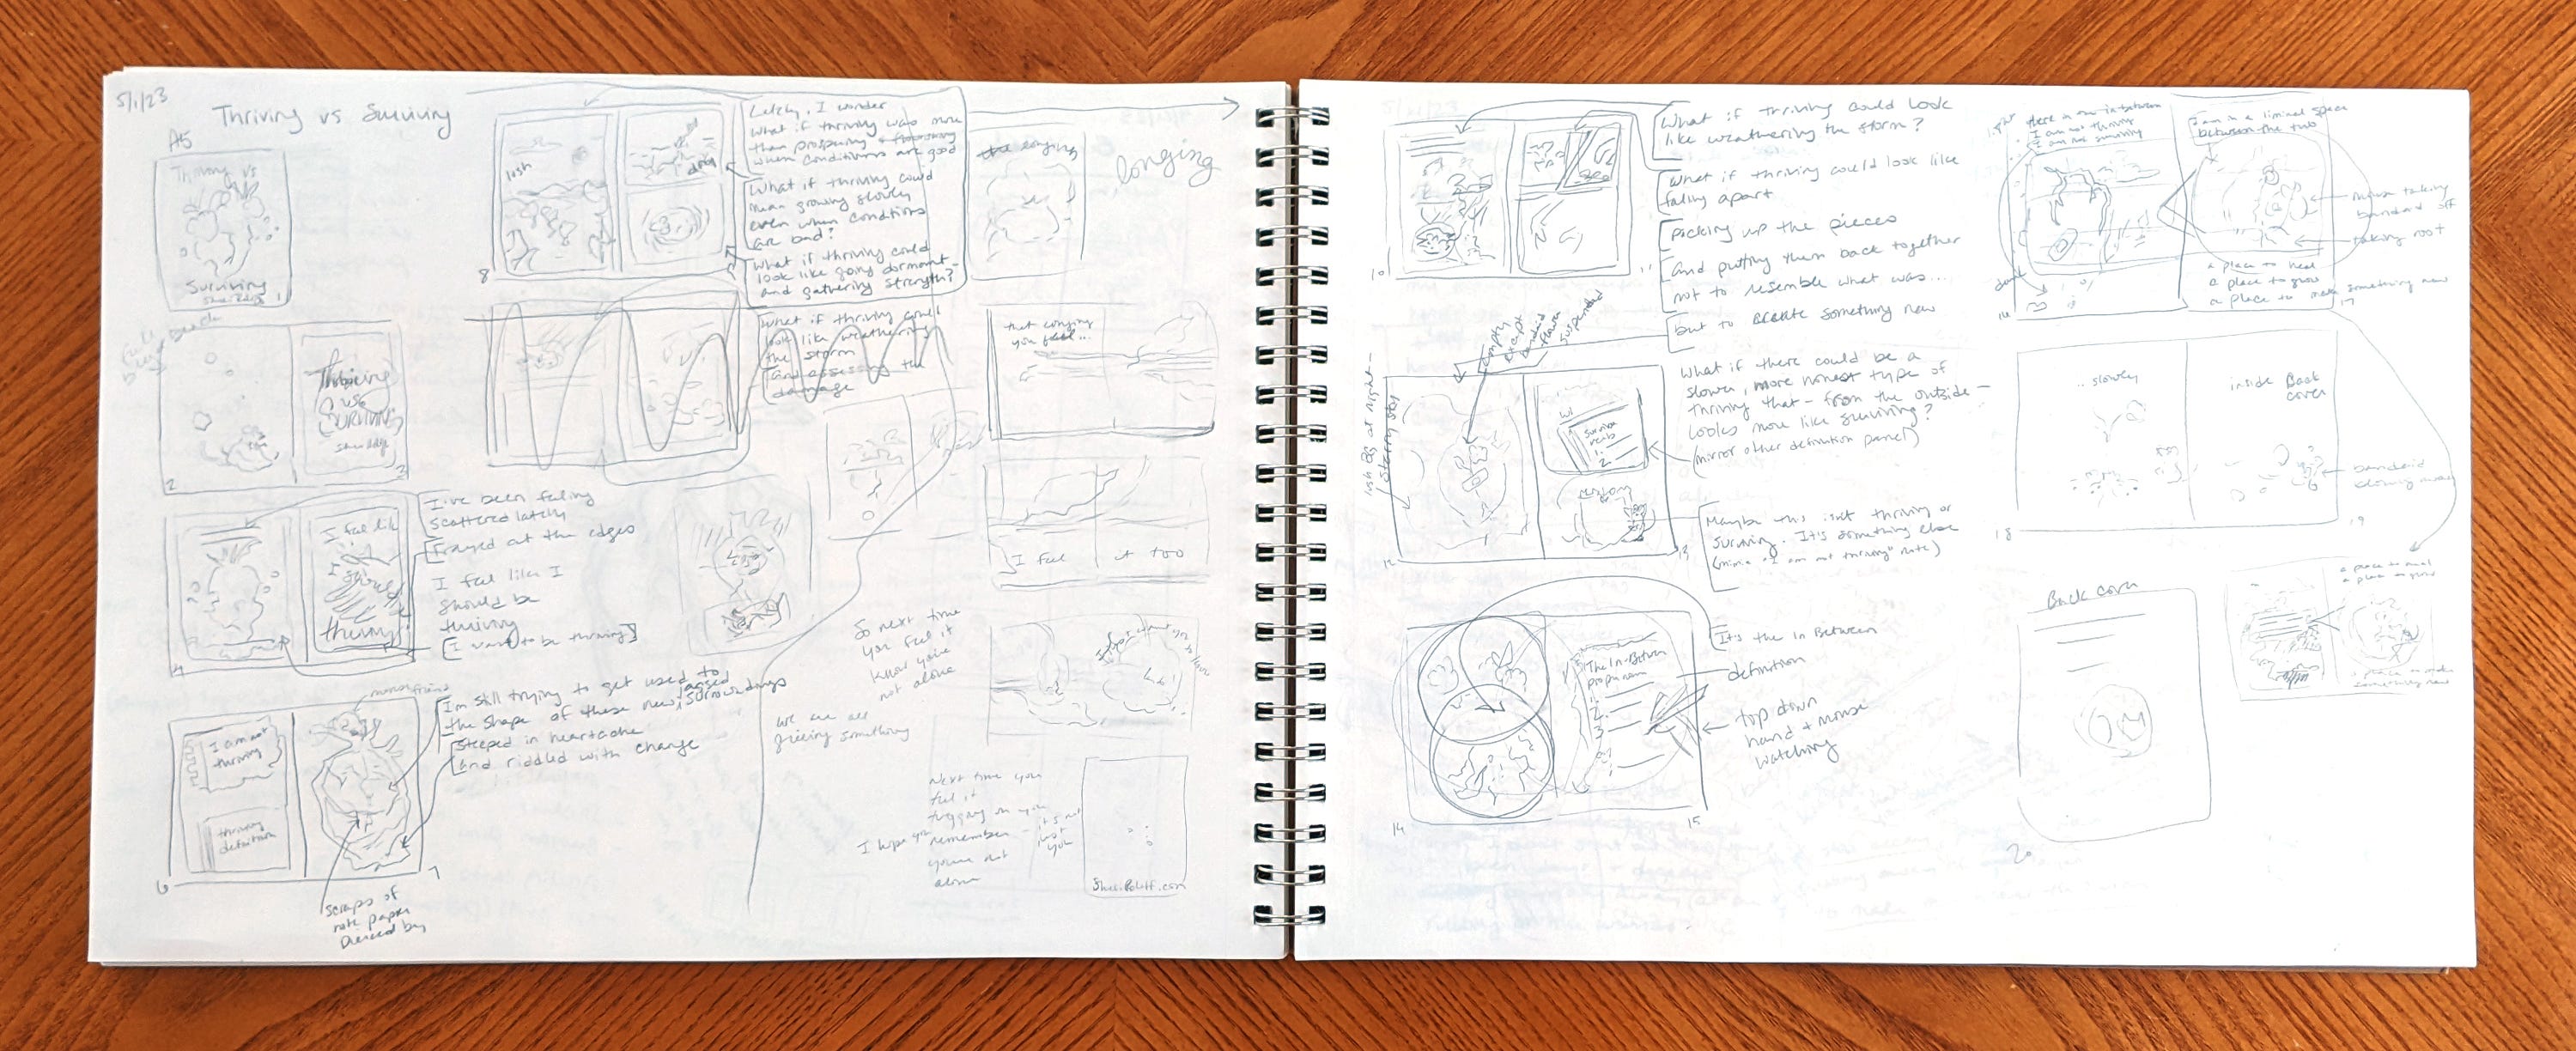 5/1/23
Thriving vs Surviving
A5
Thriving vs
Surviving
1
2
Thriving
vs
Surviving
3
I feel like
I should
thriving
4
I've been feeling
scattered lately
frayed at the edges
I feel like I
should be
thriving
I want to be thriving
I am not
thriving
thriving
definition
6
7
mouse friend
I'm still trying to get used to
the shape of these new, jagged surroundings
steeped in heartache
and riddled with change
scraps of
note paper
pierced by
lush
dying
8
Lately, I wonder
what if thriving was more
than prospering + flourishing
when conditions are good
What if thriving could
mean growing slowly
even when conditions
are bad?
What if thriving could
look like going dormant
and gathering strength?
What if thriving could
look like weathering
the storm
and assessing the
damage
the longing
longing
that longing
you feel...
I feel it too
So next time
you feel it
know you're
not alone
we are all
grieving something
Next time you
feel it
tugging on you
I hope you remember - it's not
just
you
you're not
alone
10
11
What if thriving could look
like weathering the storm?
What if thriving could look like
falling apart
picking up the pieces
and putting them back together
not to resemble what was...
but to create something new
empty
except
bandaid
suspended
What if there could be a
slower, more honest type of
thriving that - from the outside -
looks more like surviving?
(mirror other definition panel)
12
13
Maybe this isn't thriving or
surviving. It's something else
(mimic "I am not thriving" note)
It's the In Between
definition
The In-Between
proper noun
1.
2.
3.
top down
hand + mouse
watching
14
15
there is an in-between
I am not thriving
I am not surviving
I am in a liminal space
between the two
mouse taking
bandaid off
taking root
a place to heal
a place to grow
a place to make something new
17
..slowly
inside Back
cover
bandaid
18
19
Back cover
20
a place to heal
a place to grow
a place to make
something new